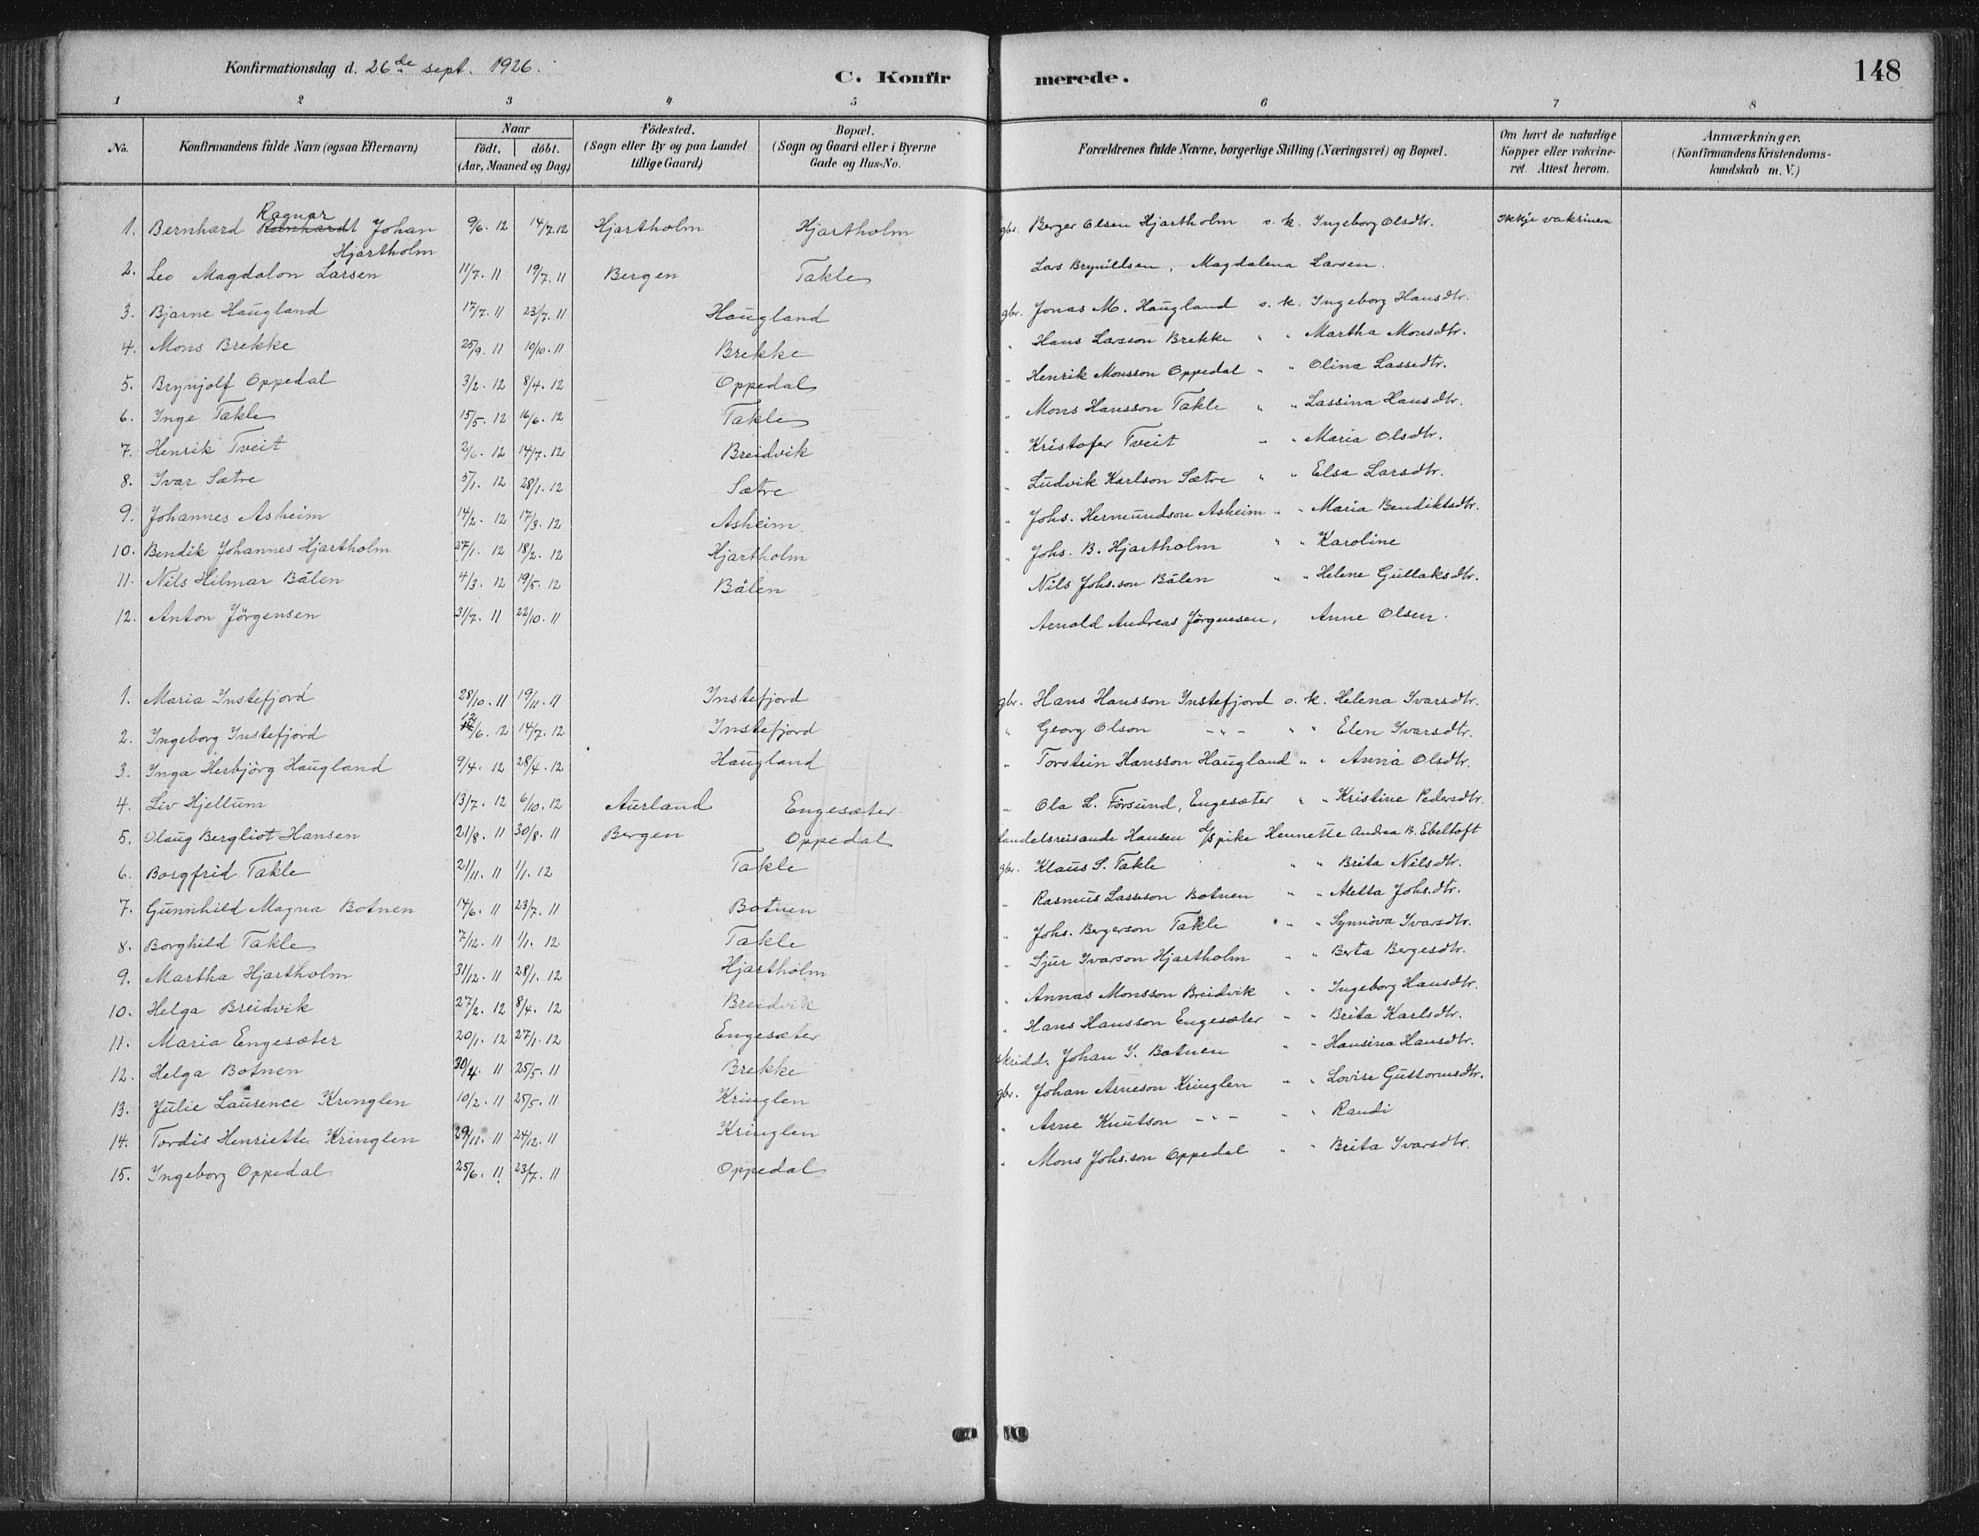 Konfirmationsdag d. 26de sept. 1926.
C. Konfir merede. 148
1 2 3 4 5 6 7 8
No. Konfirmandens fulde Navn (ogsaa Efternavn) Naar födt. döbt. (Aar, Maaned og Dag) Födested. (Sogn eller By og paa Landet tillige Gaard) Bopæl. (Sogn og Gaard eller i Byerne Gade og Hus-No. Forældrenes fulde Navne, borgerlige Stilling (Næringsvei) og Bopæl. Om havt de naturlige Kopper eller vakcineret. Attest herom. Anmærkninger. (Konfirmandens Kristendomskundskab m. V.)
1. Bernhard Ragnar Johan Hjartholm 9/6. 12 14/7. 12 Hjartholm Hjartholm gbr. Berger Olsen Hjartholm o. k. Ingeborg Olsdtr. Ikkje vaksinera
2. Leo Magdalon Larsen 11/7. 11 19/7. 11 Bergen Takle Lars Brynildsen, Magdalena Larsen.
3. Bjarne Haugland 17/7. 11 23/7. 11 Haugland gbr. Jonas M. Haugland o. k. Ingeborg Hansdtr.
4. Mons Brekke 25/9. 11 10/10. 11 Brekke " Hans Larsson Brekke " " Martha Monsdtr.
5. Brynjolf Oppedal 3/2. 12 8/4. 12 Oppedal " Henrik Monsson Oppedal " " Olina Lassedtr.
6. Inge Takle 15/5. 12 16/6. 12 Takle " Mons Hansson Takle " " Lassina Hansdtr.
7. Henrik Tveit 2/6. 12 14/7. 12 Breidvik " Kristofer Tveit " " Maria Olsdtr.
8. Ivar Sætre 5/1. 12 28/1. 12 Sætre " Ludvik Karlson Sætre " " Elsa Larsdtr.
9. Johannes Asheim 14/2. 12 17/3. 12 Asheim " Johs. Hermundson Asheim " " Maria Bendiktsdtr.
10. Bendik Johannes Hjartholm 27/1. 12 18/2. 12 Hjartholm " Johs. B. Hjartholm " " Karoline
11. Nils Hilmar Bålen 4/3. 12 19/5. 12 Bålen Nils Johs.son Bålen " " Helene Gullaksdtr.
12. Anton Jörgensen 31/7. 11 22/10. 11 Arnold Andreas Jörgensen, Anne Olsen.
1. Maria Instefjord 28/10. 11 19/11. 11 Instefjord gbr. Hans Hansson Instefjord o. k. Helena Ivarsdtr.
2. Ingeborg Instefjord 12/6. 12 14/7. 12 Instefjord " Georg Olson - " - " " Elen Ivarsdtr.
3. Inga Herbjörg Haugland 9/4. 12 28/4. 12 Haugland " Torstein Hansson Haugland " " Anna Olsdtr.
4. Liv Hjellum 13/7. 12 6/10. 12 Aurland Engesæter " Ola L. Forsund, Engesæter " " Kristine Pedersdtr.
5. Olaug Bergliot Hansen 21/8. 11 30/8. 11 Bergen Oppedal Handelsreisande Hansen spike Hennette Andrea B. Ebeltoft
6. Borgfrid Takle 21/11. 11 1/1. 12 Takle gbr. Klaus S. Takle " " Brita Nilsdtr.
7. Gunnhild Magna Botnen 14/6. 11 23/7. 11 Botnen " Rasmus Lassson Botnen " " Aletta Johs.dtr.
8. Borghild Takle 7/12. 11 1/1. 12 Takle " Johs. Bergerson Takle " " Synnöva Ivarsdtr.
9. Martha Hjartholm 31/12. 11 28/1. 12 Hjartholm " Sjur Ivarson Hjartholm " " Berta Bergesdtr.
10. Helga Breidvik 27/2. 12 8/4. 12 Breidvik " Annas Monsson Breidvik " " Ingeborg Hansdtr.
11. Maria Engesæter 20/1. 12 27/1. 12 Engesæter " Hans Hansson Engesæter " " Brita Karlsdtr.
12. Helga Botnen 30/4. 11 25/5. 11 Brekke skridd. Johan I. Botnen " " Hansina Hansdtr.
13. Julie Laurence Kringlen 10/2. 11 25/5. 11 Kringlen gbr. Johan Arneson Kringlen " " Lovise Guttormsdtr.
14. Tordis Henriette Kringlen 29/11. 11 24/12. 11 Kringlen " Arne Knutson - " - " " Randi
15. Ingeborg Oppedal 25/6. 11 23/7. 11 Oppedal " Mons Johs.son Oppedal " " Brita Ivarsdtr.